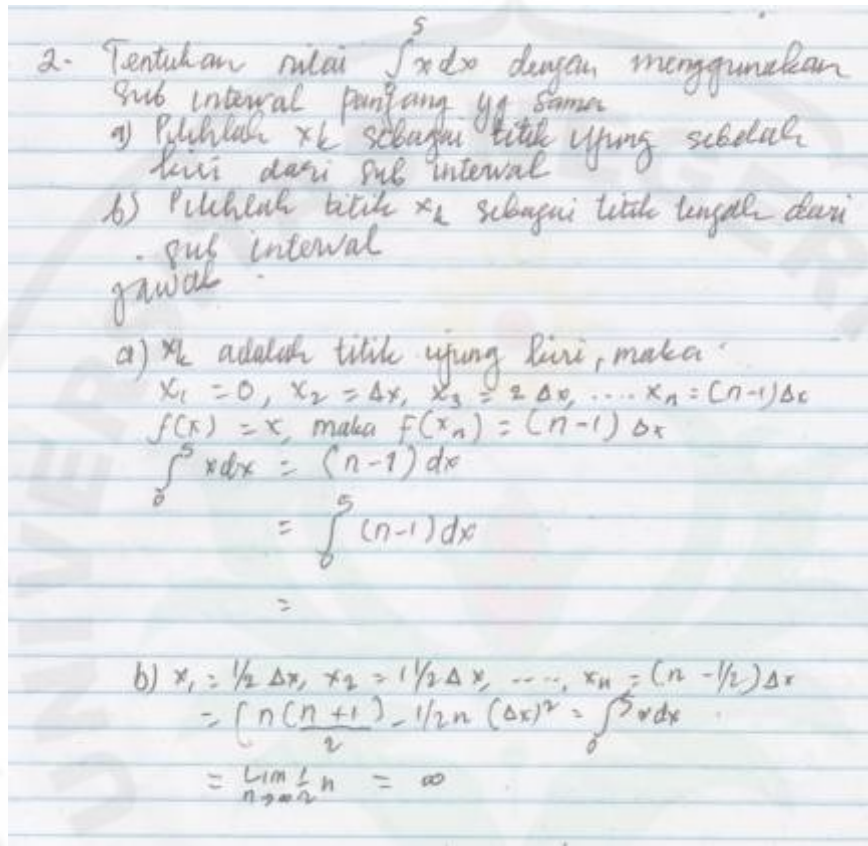 2. Tentukan nilai ∫₀⁵ x dx dengan menggunakan
sub interval panjang yg sama
a) Pilihlah xk sebagai titik ujung sebelah
kiri dari sub interval
b) Pilihlah titik xk sebagai titik tengah dari
sub interval
Jawab
a) xk adalah titik ujung kiri, maka
x₁ = 0, x₂ = Δx, x₃ = 2 Δx, .... xn = (n-1)Δx
f(x) = x, maka F(xn) = (n-1) Δx
∫₀⁵ x dx = (n-1) dx
= ∫₀⁵ (n-1) dx
=
b) x₁ = 1/2 Δx, x₂ = 1 1/2 Δx, ...., xn = (n - 1/2) Δx
= (n(n+1)/2 - 1/2 n (Δx)² = ∫₀⁵ x dx
= Lim n→∞ 1/2 n = ∞
UNIVERSITAS NEGERI